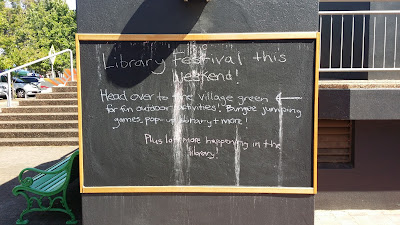 Library Festival this
Weekend!
Head over to the village green
for fun outdoor activities! Bungee jumping
games, pop-up library + more!
Plus lots more happening in the
library!